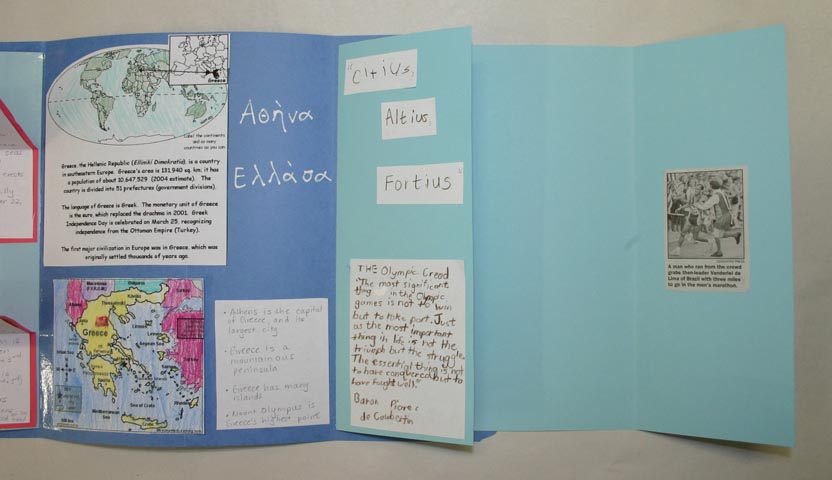 Greece
Label the continents
and as many
countries as you can
Greece, the Hellenic Republic (Elliniki Dimokratia), is a country
in southeastern Europe. Greece's area is 131,940 sq. km; it has
a population of about 10,647,529 (2004 estimate). The
country is divided into 51 prefectures (government divisions).
The language of Greece is Greek. The monetary unit of Greece
is the euro, which replaced the drachma in 2001. Greek
Independence Day is celebrated on March 25, recognizing
independence from the Ottoman Empire (Turkey).
The first major civilization in Europe was in Greece, which was
originally settled thousands of years ago.
Αθήνα
Ελλάσα
Bulgaria
Greece
Turkey
Sea of Crete
Mediterranean
Sea
• Athens is the capital
of Greece, and its
largest city
• Greece is a
mountainous
peninsula
• Greece has many
islands
• Mount Olympus is
Greece's highest point
"Citius,
Altius,
Fortius"
THE Olympic Creed
"The most significant
in the Olympic
games is not to win
but to take part. Just
as the most important
thing in life is not the
triumph but the struggle.
The essential thing is not
to have conquered but to
have fought well."
Baron
de Coubertin
A man who ran from the crowd
grabs then-leader Vanderlei de
Lima of Brazil with three miles
to go in the men's marathon.